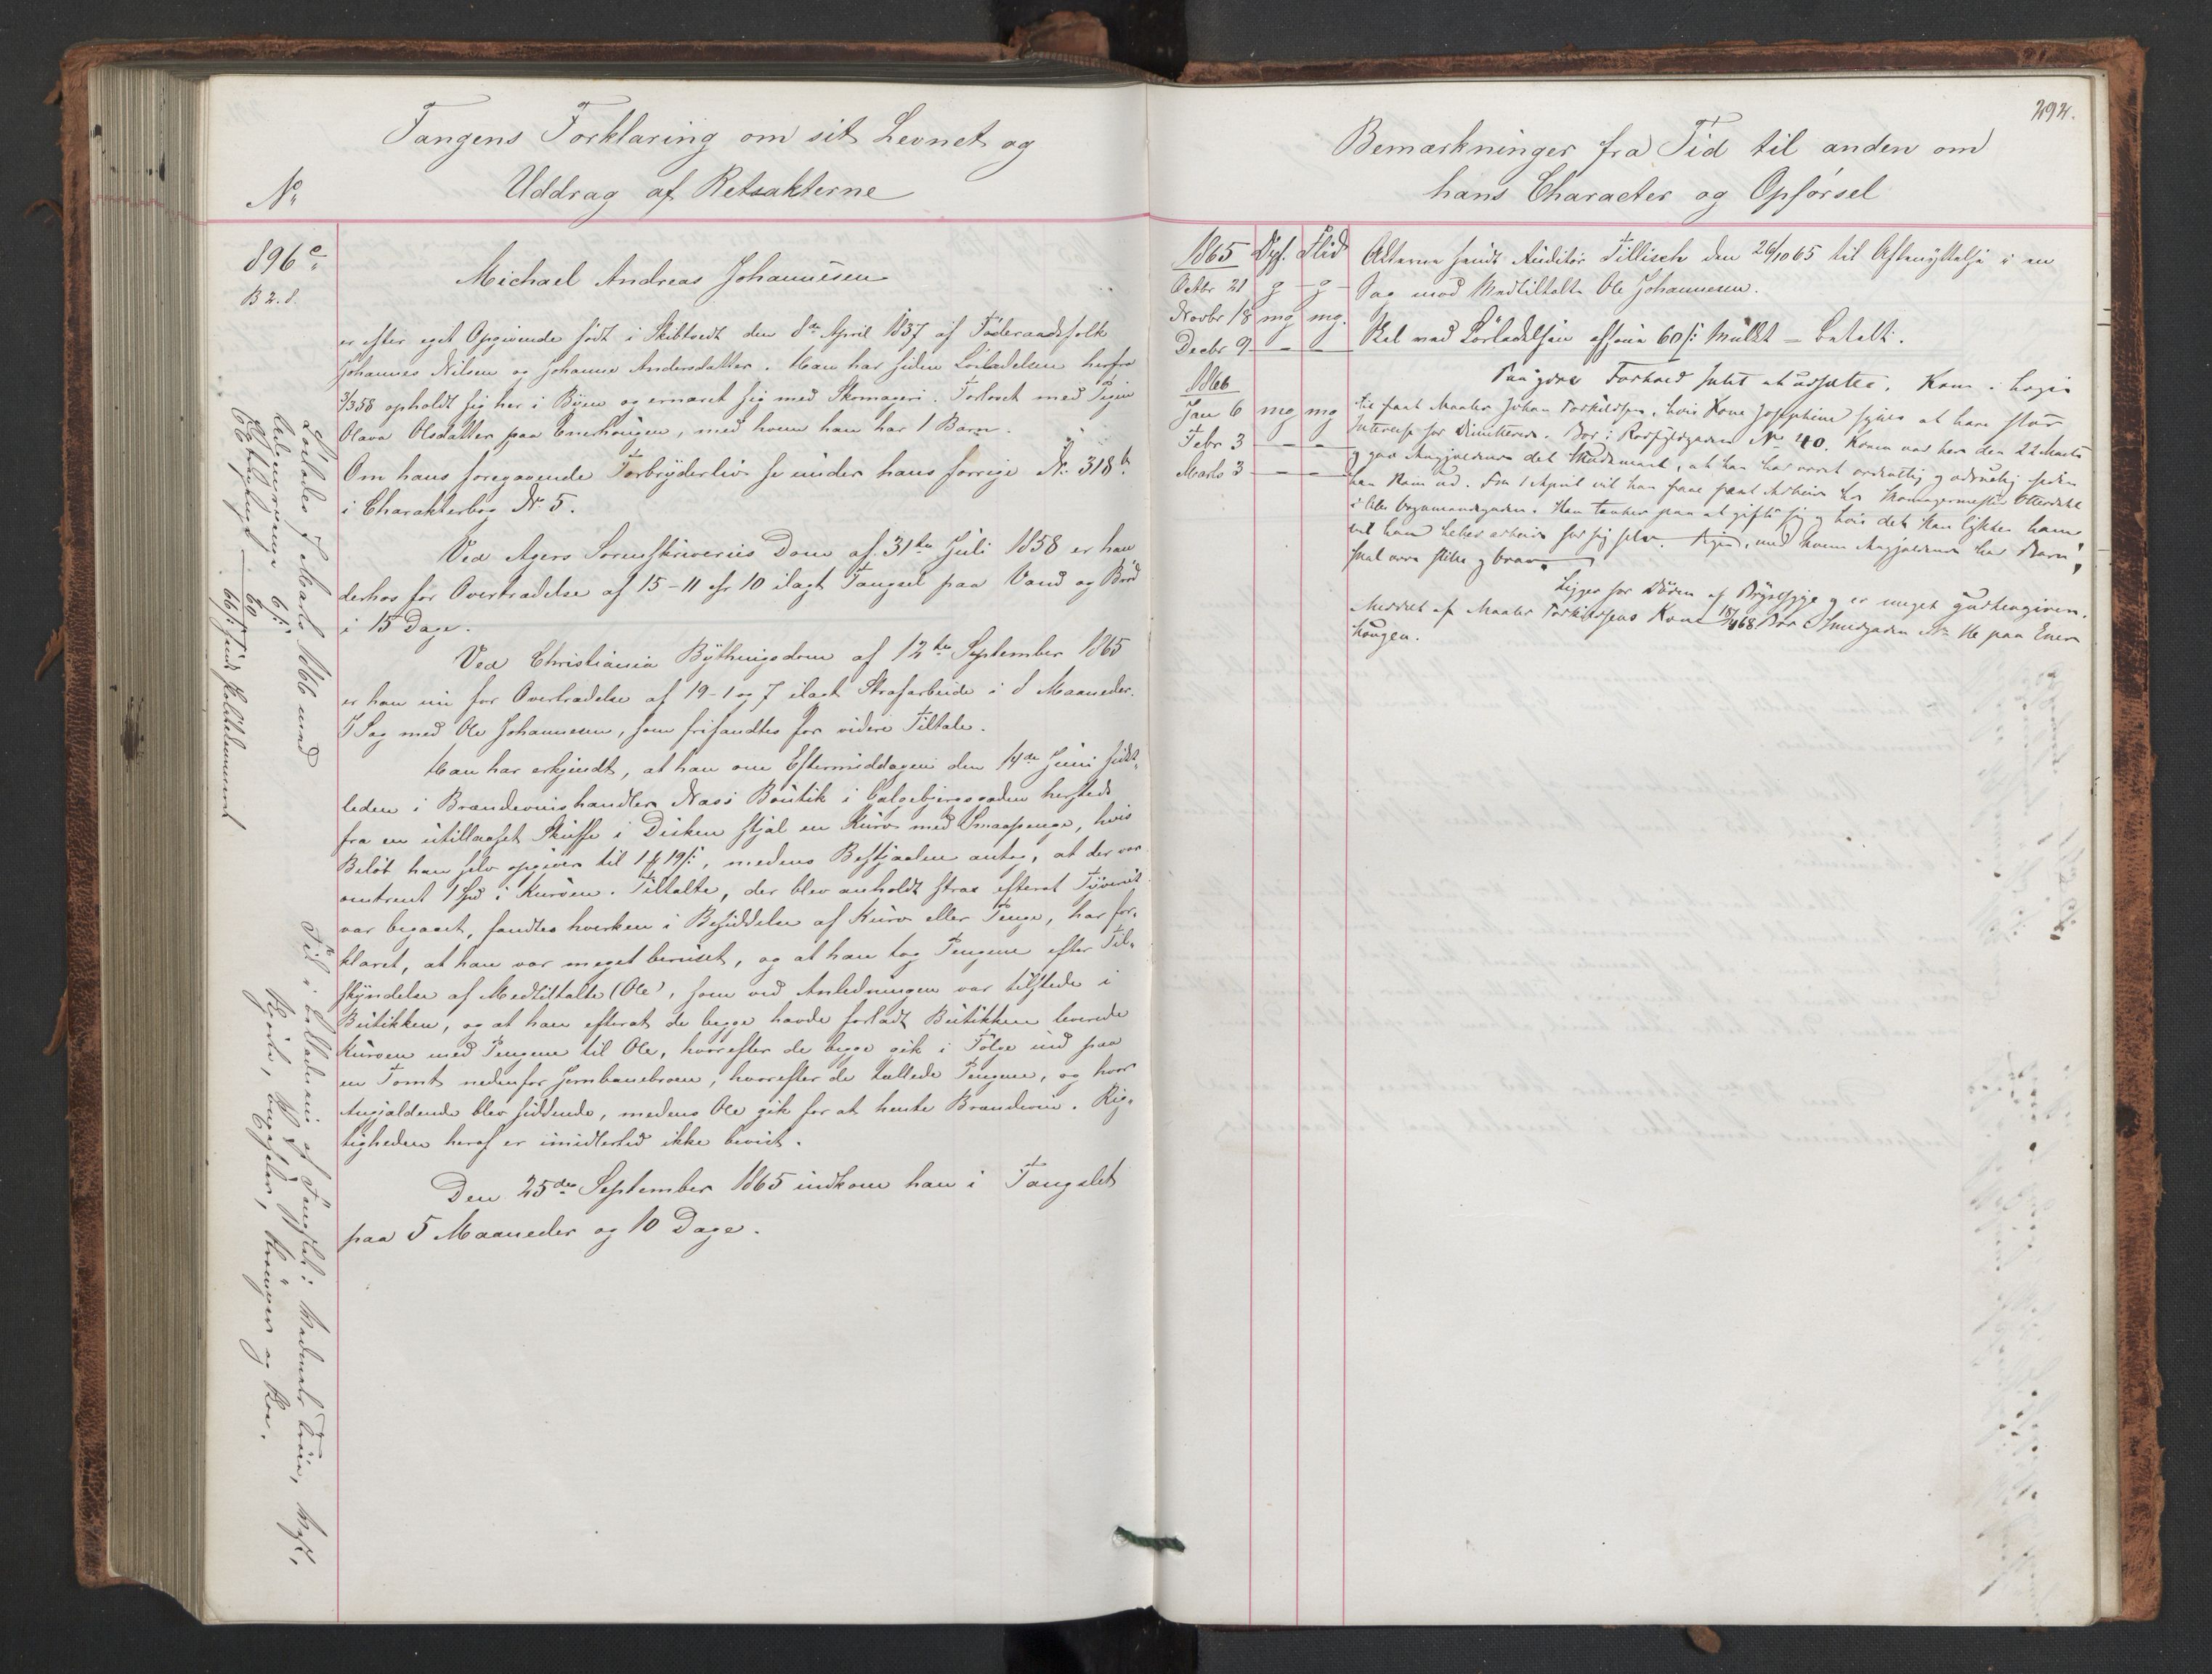 Fangens Forklaring om sit Levnet og
Uddrag af Retsakterne
No
896 c.
B 2. d.
Michael Andreas Johannesen
er efter eget Opgivende født i Skibtvedt den 8de April 1837 af Føderaadsfolk
Johannes Nilsen og Johanne Andersdatter. Han har siden Løsladelsen herfra
3/3 58 opholdt sig her i Byen og ernæret sig med Skomageri. Forlovet med Pigen
Olava Olsdatter paa Enerhougen, med hvem han har 1 Barn.
Om hans foregaaende Forbryderliv se under hans forrige No. 318 b.
i Charakterbog No 5.
Ved Agers Sorenskriveries Dom af 31te Juli 1858 er han
derhos for Overtrædelse af 15-11 cfr 10 ilagt Fængsel paa Vand og Brød
i 15 Dage.
Ved Christiania Bythingsdom af 12te September 1865
er han nu for Overtrædelse af 19-1 og 7 ilagt Strafarbeide i 8 Maaneder.
I Sag med Ole Johannesen, som frifandtes for videre Tiltale.
Han har erkjendt, at han om Eftermiddagen den 14de Juni sidst-
leden i Brændevinshandler Næss Boutik i Galgebjergsgaden hersteds
fra en utillaaset Skuffe i Disken stjal en Kurv med Smaapenge, hvis
Beløb han selv opgiver til 1 ₰ 19 s:, medens Bestjaalne antog, at der var
omtrent 1 Spd i Kurven. Tiltalte, der blev anholdt strax efterat Tyveriet
var begaaet, fandtes hverken i Besiddelse af Kurv eller Penge, har for-
klaret, at han var meget beruset, og at han tog Pengene efter Til-
skyndelse af Medtiltalte (Ole), som ved Anledningen var tilstede i
Butikken, og at han efterat de begge havde forladt Butikken leverede
Kurven med Pengene til Ole, hvorefter de begge gik i Følge ind paa
en Tomt nedenfor Jernbanebroen, hvorefter de tællede Pengene, og hvor
Angjældende blev siddende, medens Ole gik for at hente Brændevin. Rig-
tigheden heraf er imidlertid ikke bevist.
Den 25de September 1865 indkom han i Fængslet
paa 5 Maaneder og 10 Dage.
Løslades 7 Marts 1866 med
6 s:
60
66 s: sendt Politikammeret
Fik i af Fængslet: Vadmels Trøie, Vest,
og Sko.
292.
Bemærkninger fra Tid til anden om
hans Character og Opførsel
1865 Opf. Flid
Octbr 21 g g
Novbr 18 mg mg.
Decbr 9 — —
1866
Jan 6 mg mg
Febr 3 — —
Marts 3 — —
Akterne sendt Auditør Tillisch den 26/10 65 til Afbenyttelse i en
Sag mod Medtiltalte Ole Johannesen.
Skal ved Løsladelsen afsone 60 s: Mulkt = betalt.
Paa hans Forhold Intet at udsætte. Kom i Logis
til fast Maaler Johan Torkildsen, hvis Kone Josephine synes at have stor
Interesse for Dimitterede. Bor i Rødfyldgaden No 40. Konen var her den 22 Marts
og gav Angjældende det Skudsmaal, at han har været ordentlig og ædruelig siden
han kom ud. Fra 1 April vil han faae fast Arbeide hos Skomagermester Otterdahl
i lille Vognmandsgaden. Han tænker paa at gifte sig og hvis det kan lykkes ham,
vil han helst arbeide for sig selv. Pigen, med hvem Angjældende har Barn,
skal være flink og brav.
Ligger for Døden af Brystsyge og er meget gudhengiven.
Meddelt af Maaler Torkildsens Kone 15/4 68. Bor Smedgaden No 16 paa Ener-
hougen.